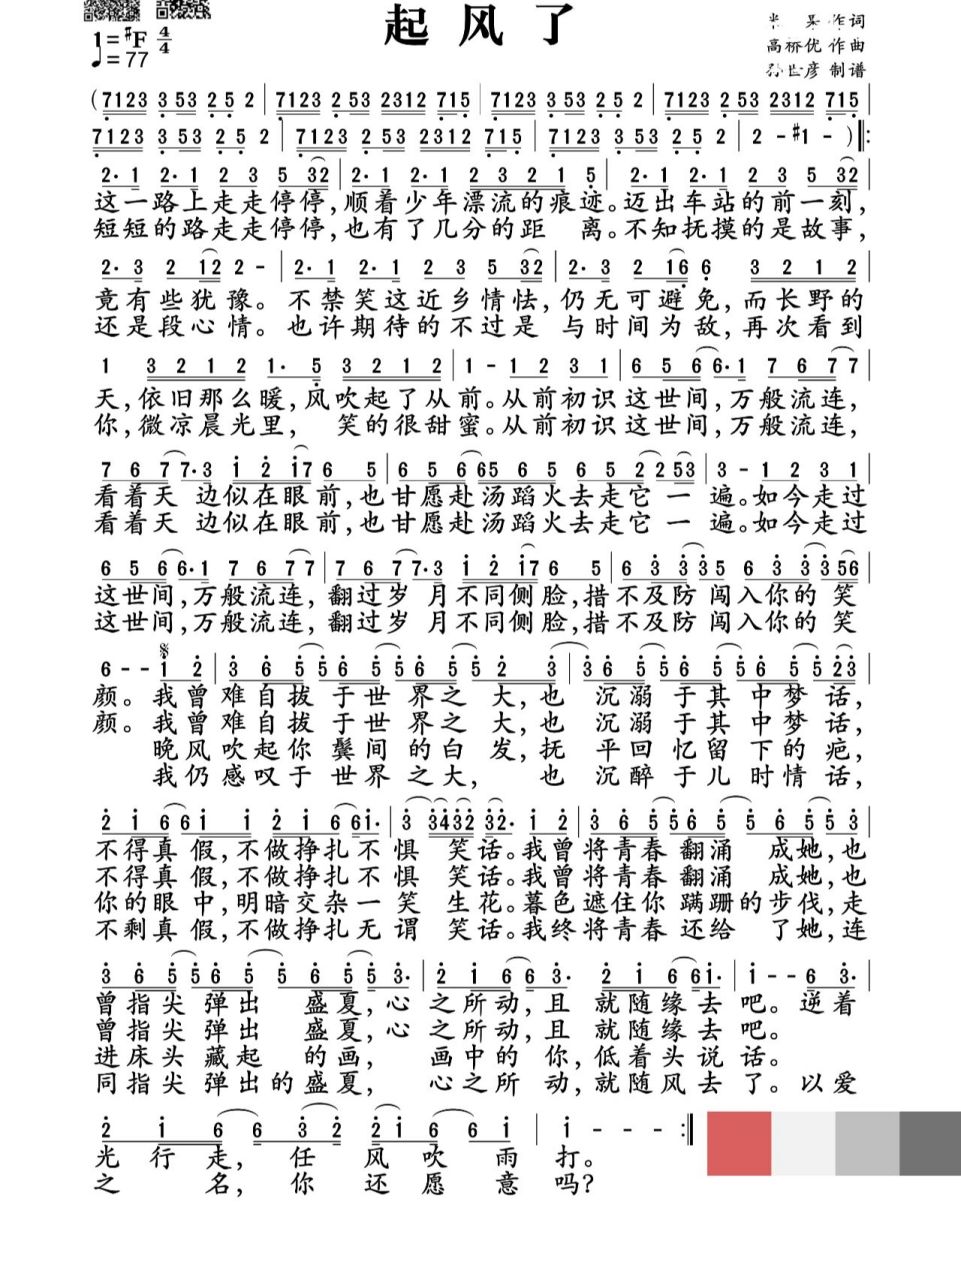 起风了
1=#F 4/4
♩=77
作词
高桥优 作曲
孙世彦 制谱
(7123 3 53 2 5 2 | 7123 2 53 2312 715 | 7123 3 53 2 5 2 | 7123 2 53 2312 715 |
7123 3 53 2 5 2 | 7123 2 53 2312 715 | 7123 3 53 2 5 2 | 2 - #1 - ) ‖:
2· 1 2· 1 2 3 5 32 | 2· 1 2· 1 2 3 2 1 5 | 2· 1 2· 1 2 3 5 32 |
这一路上走走停停,顺着少年漂流的痕迹。迈出车站的前一刻,
短短的路走走停停,也有了几分的距 离。不知抚摸的是故事,
2· 3 2 12 2 - | 2· 1 2· 1 2 3 5 32 | 2· 3 2 16 6 3 2 1 2 |
竟有些犹豫。不禁笑这近乡情怯,仍无可避免,而长野的
还是段心情。也许期待的不过是 与时间为敌,再次看到
1 3 2 1 2 1· 5 3 2 1 2 | 1 - 1 2 3 1 | 6 5 6 6· 1 7 6 7 7 |
天,依旧那么暖,风吹起了从前。从前初识这世间,万般流连,
你,微凉晨光里, 笑的很甜蜜。从前初识这世间,万般流连,
7 6 7 7· 3 1 2 17 6 5 | 6 5 6 65 6 5 6 5 2 2 53 | 3 - 1 2 3 1 |
看着天 边似在眼前,也甘愿赴汤蹈火去走它 一 遍。如今走过
看着天 边似在眼前,也甘愿赴汤蹈火去走它 一 遍。如今走过
6 5 6 6· 1 7 6 7 7 | 7 6 7 7· 3 1 2 17 6 5 | 6 3 3 3 5 6 3 3 3 56 |
这世间,万般流连,翻过岁 月不同侧脸,措不及防 闯入你的 笑
这世间,万般流连,翻过岁 月不同侧脸,措不及防 闯入你的 笑
6 - - 1 2 | 3 6 5 5 6 5 5 6 5 5 2 3 | 3 6 5 5 6 5 5 6 5 5 2 3 |
颜。我曾难自拔 于世 界之 大,也 沉溺 于其 中梦 话,
颜。我曾难自拔 于世 界之 大,也 沉溺 于其 中梦 话,
晚风吹起你 鬓间 的白 发,抚 平回 忆留 下的 疤,
我仍感叹于 世界 之大, 也 沉醉 于儿 时情 话,
2 1 6 6 1 1 2 1 6 6 1· | 3 3 4 3 2 3 2· 1 2 | 3 6 5 5 6 5 5 6 5 5 3 |
不得真 假,不做挣扎不 惧 笑话。我曾将青春 翻涌 成她,也
不得真 假,不做挣扎不 惧 笑话。我曾将青春 翻涌 成她,也
你的眼 中,明暗交杂一 笑 生花。暮色遮住你 蹒跚的步伐,走
不剩真 假,不做挣扎无 谓 笑话。我终将青春 还给 了她,连
3 6 5 5 6 5 5 6 5 5 3· | 2 1 6 6 3· 2 1 6 6 1· | 1 - - 6 3· |
曾指尖 弹出 盛夏,心 之所动,且 就随缘去 吧。逆着
曾指尖 弹出 盛夏,心 之所动,且 就随缘去 吧。
进床头 藏起 的画, 画中的 你,低着头说 话。
同指尖 弹出的盛夏, 心之所 动,就随风去 了。以爱
2 1 6 6 3 2 2 1 6 6 1 | 1 - - - :‖
光 行 走, 任 风 吹 雨 打。
之 名, 你 还 愿 意 吗?